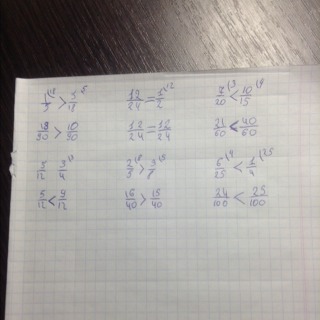 1/5 \18 > /18 \5   12/24 = 1/2 \12   7/20 \3 < 10/15 \4
18/90 > 10/90   12/24 = 12/24   21/60 < 40/60
5/12 3/4 \3   2/5 \8 > 3/8 \5   6/25 \4 < 1/4 \25
5/12 < 9/12   16/40 > 15/40   24/100 < 25/100